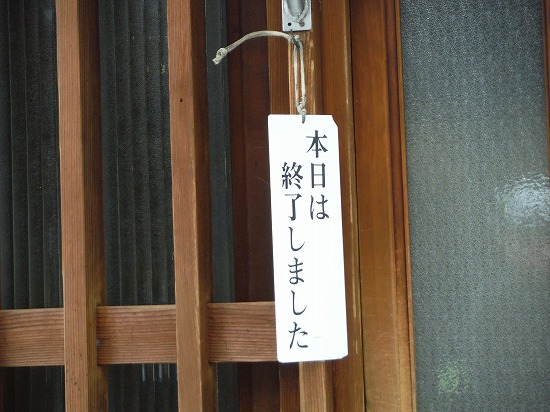 本日は
終了しました